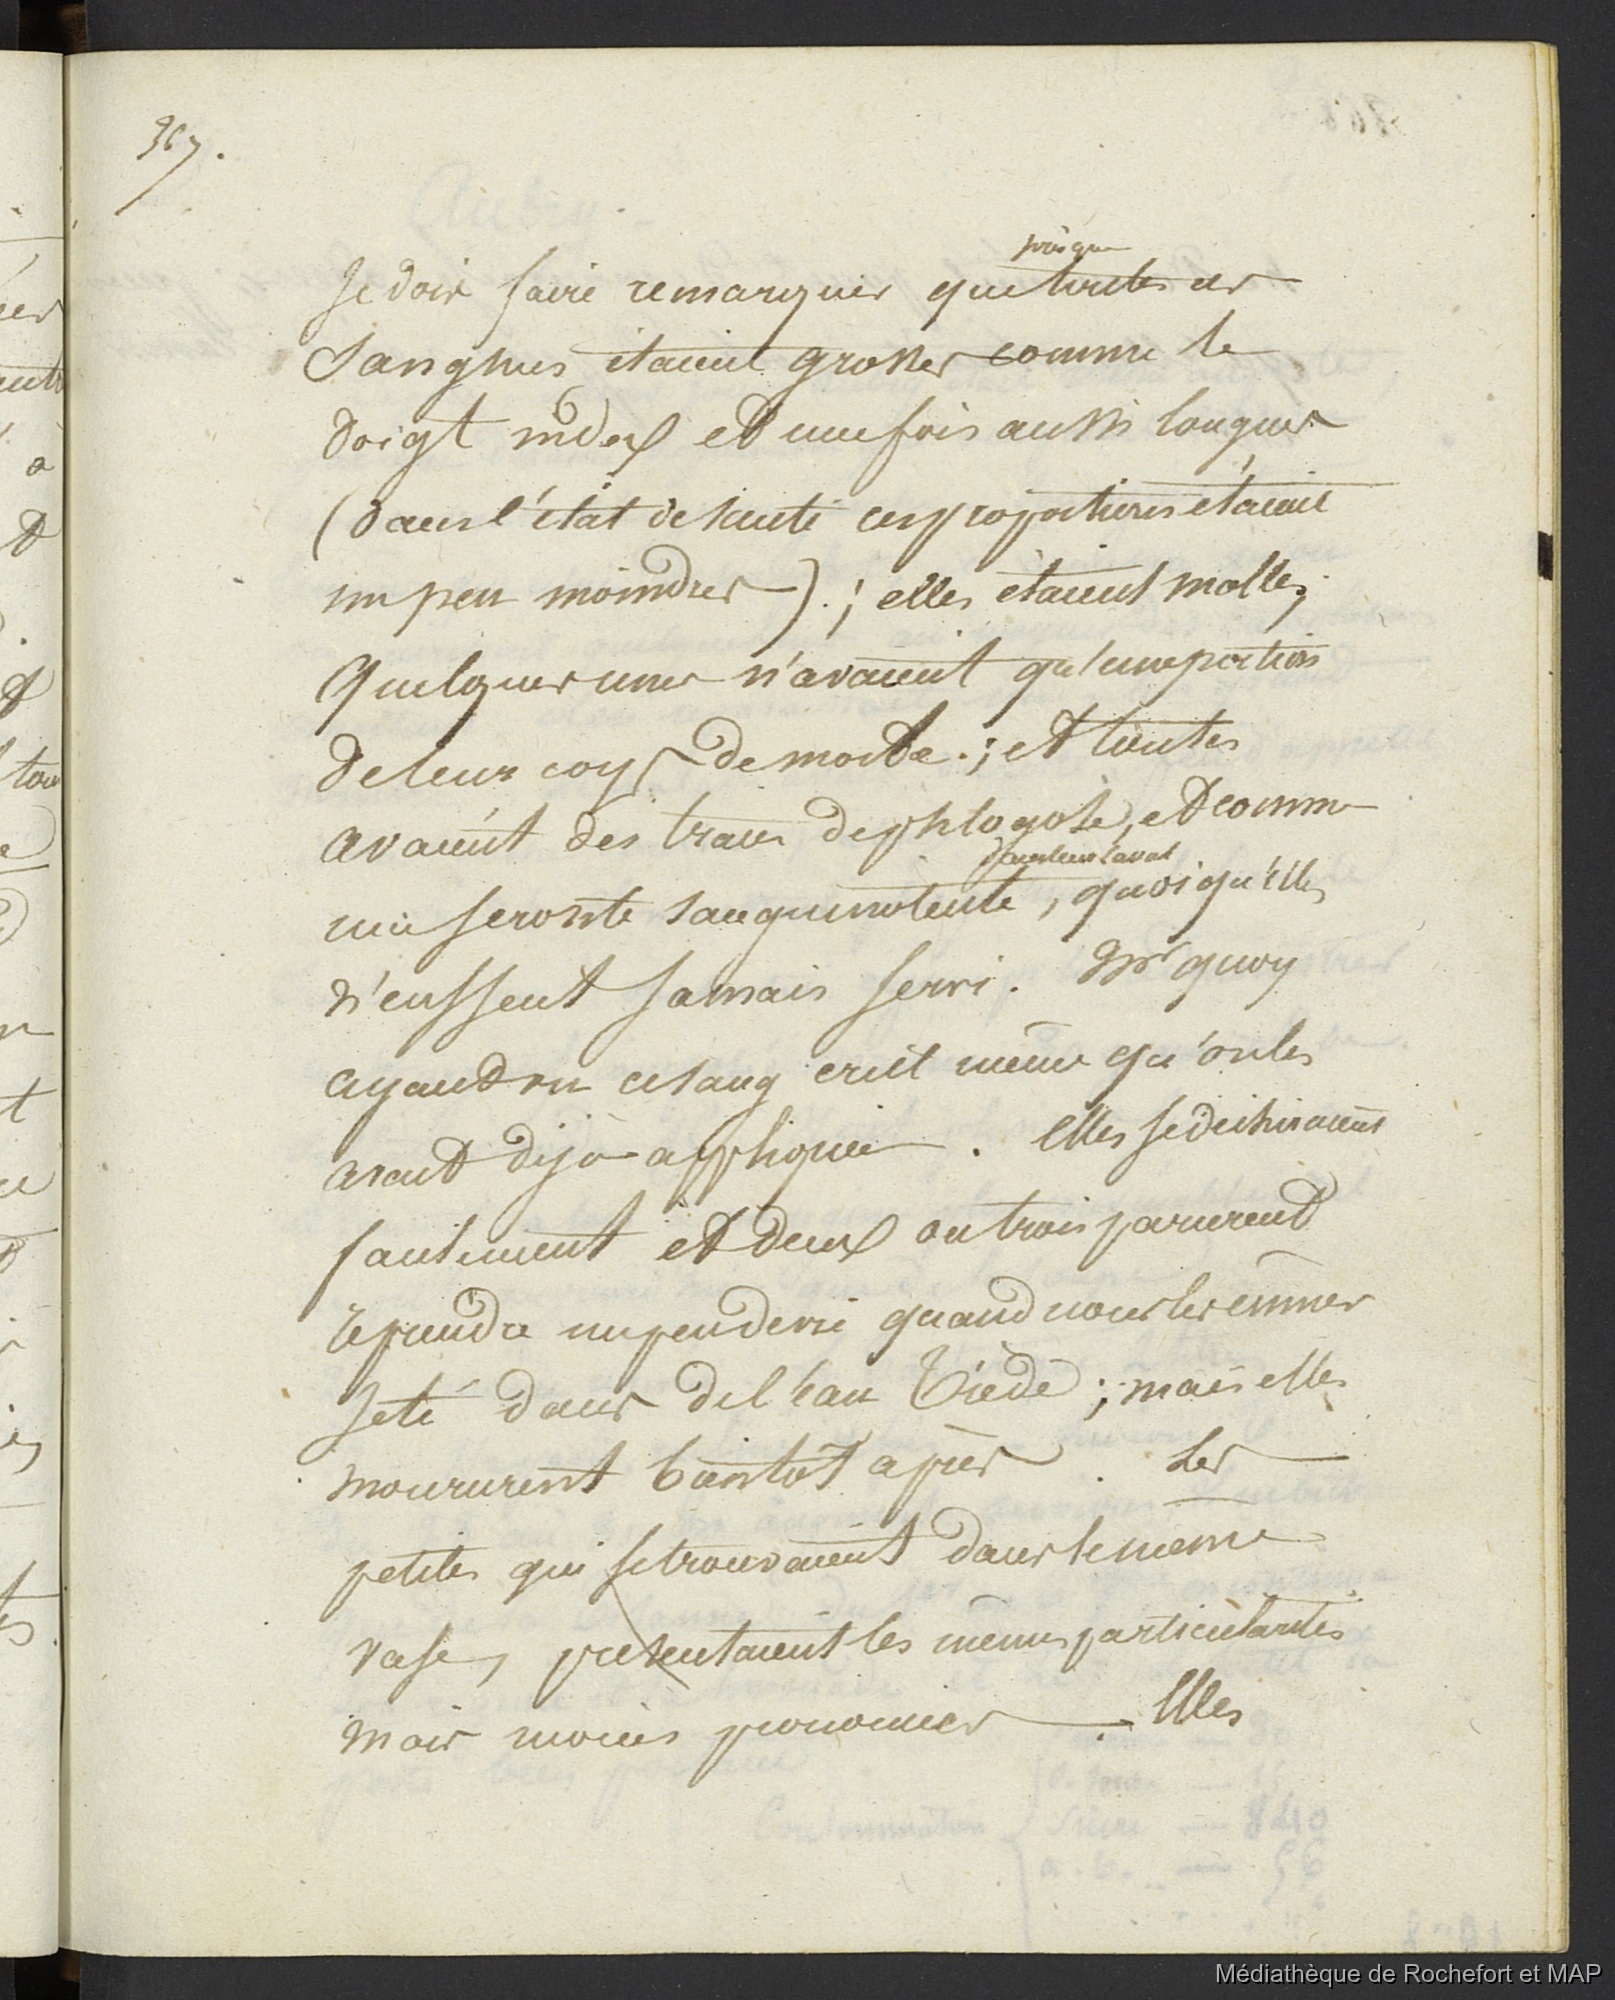 367.
presque
Je dois faire remarquer que toutes ces
Sangsues étaient grosses comme le
doigt index et une fois aussi longues
(dans l'état de santé ces proportions étaient
un peu moindres).; elles étaient molles;
Quelques unes n'avaient qu'une portion
de leur corps de morte.; et toutes
avaient des traces de phlogose, et comme
dans leur canal
une serosité sanguinolente, quoiqu'elles
n'eussent jamais servi. Mr quoy
ayant vu ce sang crut même qu'on les
avait déjà appliquée. Elles se dechiraient
facilement et deux ou trois parurent
reprendre un peu de vie quand nous les eumes
jeté dans de l'eau tiède; mais elles
moururent bientôt après. Les
petites qui se trouvaient dans le même
vase, presentaient les mêmes particularités
mais moins prononcées. Elles
Médiathèque de Rochefort et MAP